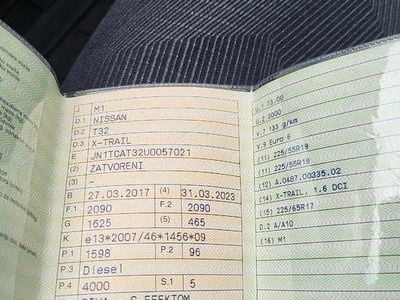 J M1
D.1 NISSAN
D.2 T32
D.3 X-TRAIL
E JN1TCAT32U0057021
(2) ZATVORENI
(3) -
B 27.03.2017 (4) 31.03.2023
F.1 2090 F.2 2090
G 1625 (5) 465
K e13*2007/46*1456*09
P.1 1598 P.2 96
P.3 Diesel
P.4 4000 S.1 5
U.1 75.00
U.2 3000
V.7 133 g/km
V.9 Euro 6
(11) 225/55R19
(11) 225/55R19
(12) A.0487.00335.02
(14) X-TRAIL, 1.6 DCI
(15) 225/65R17
D.2 A/A0
(16) M1